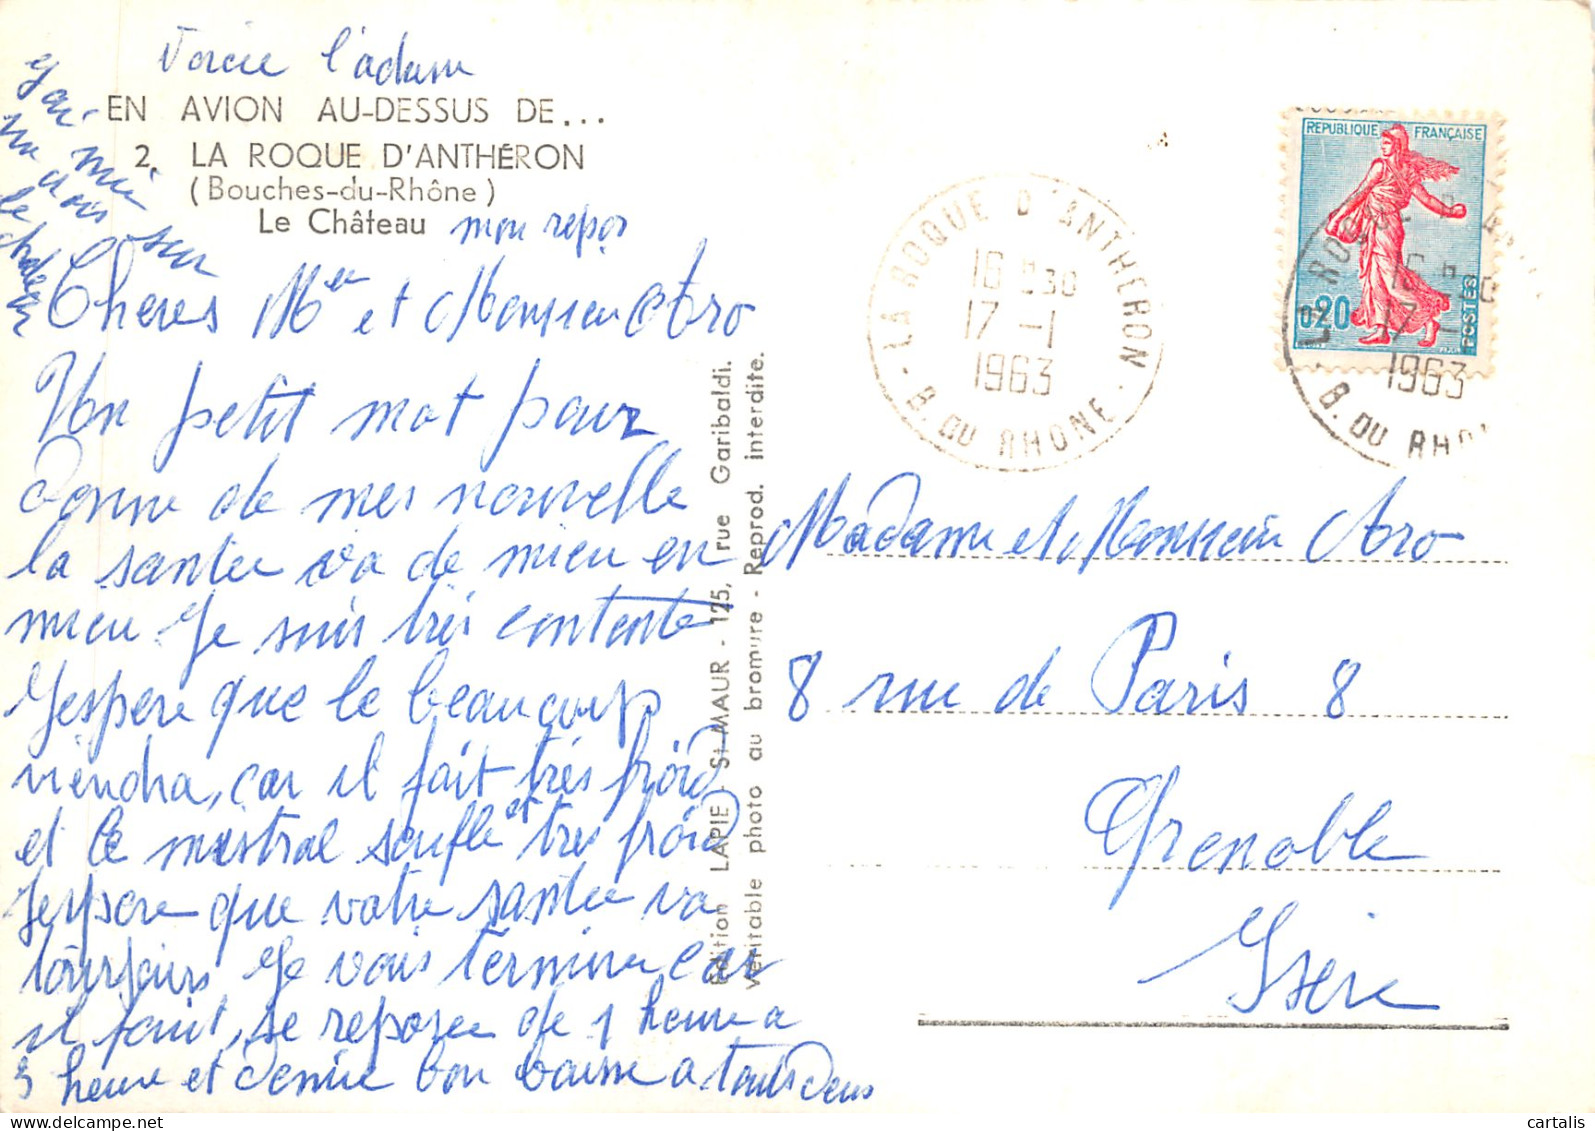 Voicie l'adam
EN AVION AU-DESSUS DE...
2. LA ROQUE D'ANTHÉRON
(Bouches-du-Rhône)
Le Château
mon repos
J'ai mis
ma croix sur
le
Chères Mer et Monsieur Aro
Un petit mot pour
donne de mes nouvelle
la santée va de mieu en
mieu Je suis très contente
J'espère que le beaucoup
viendra, car il fait très froid
et le mistral soufle et très froid
Jespere que votre santée va
toujours Je vais termine car
il faut, se reposée de 1 heure a
3 heure et demie bon baisse a touts deus
Edition LAPIE, St-MAUR - 125, rue Garibaldi.
Véritable photo au bromure - Reprod. interdite.
LA ROQUE D'ANTHERON
16 H 30
17 -1
1963
B. DU RHONE
REPUBLIQUE FRANÇAISE
0,20
POSTES
LA ROQUE D'ANT
16 H 30
17 -
1963
B. DU RHO
Madame et Monsieur Aro
8 rue de Paris 8
Grenoble
Isère
cartalis